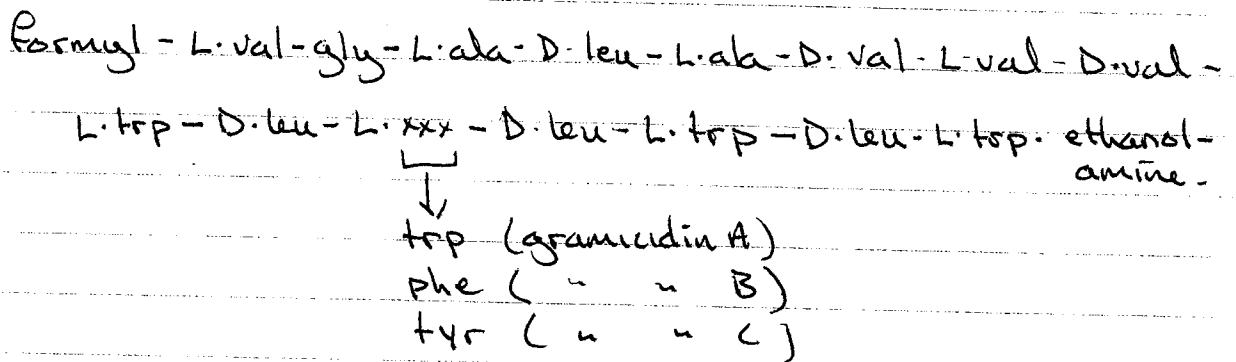 formyl - L.val-gly-L.ala-D.leu-L.ala-D.val.L.val-D.val-
L.trp-D.leu-L.xxx-D.leu-L.trp-D.leu-L.trp. ethanol-
amine.
trp (gramicidin A)
phe ( " " B)
tyr ( " " C)